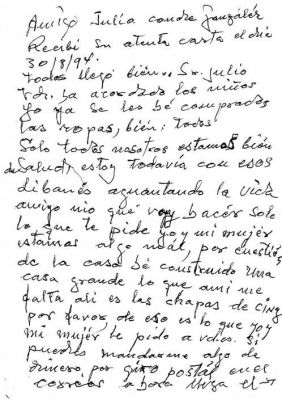 Amigo Julio conde González
Recibí su atenta carta el día
30/8/94.
todos llegó bién. Sr. Julio
los niños
yo ya se les bé comprados
las ropas, bién: todos
Solo todos nosotros estamos bién
de Salud, estoy todavía con esos
libanés aguantando la vida
amigo mio qué voy hacér solo
lo que te pide yo y mi mujer
estamos algo mál, por cuestión
de la casa bé construido una
casa grande lo que ami me
falta ali es las chapas de Cinq
por favor de eso es lo que yo y
mi mujer te pido a vdios. si
puedes mandarme algo de
dinero, por giro postál en el
correos a bora llega el